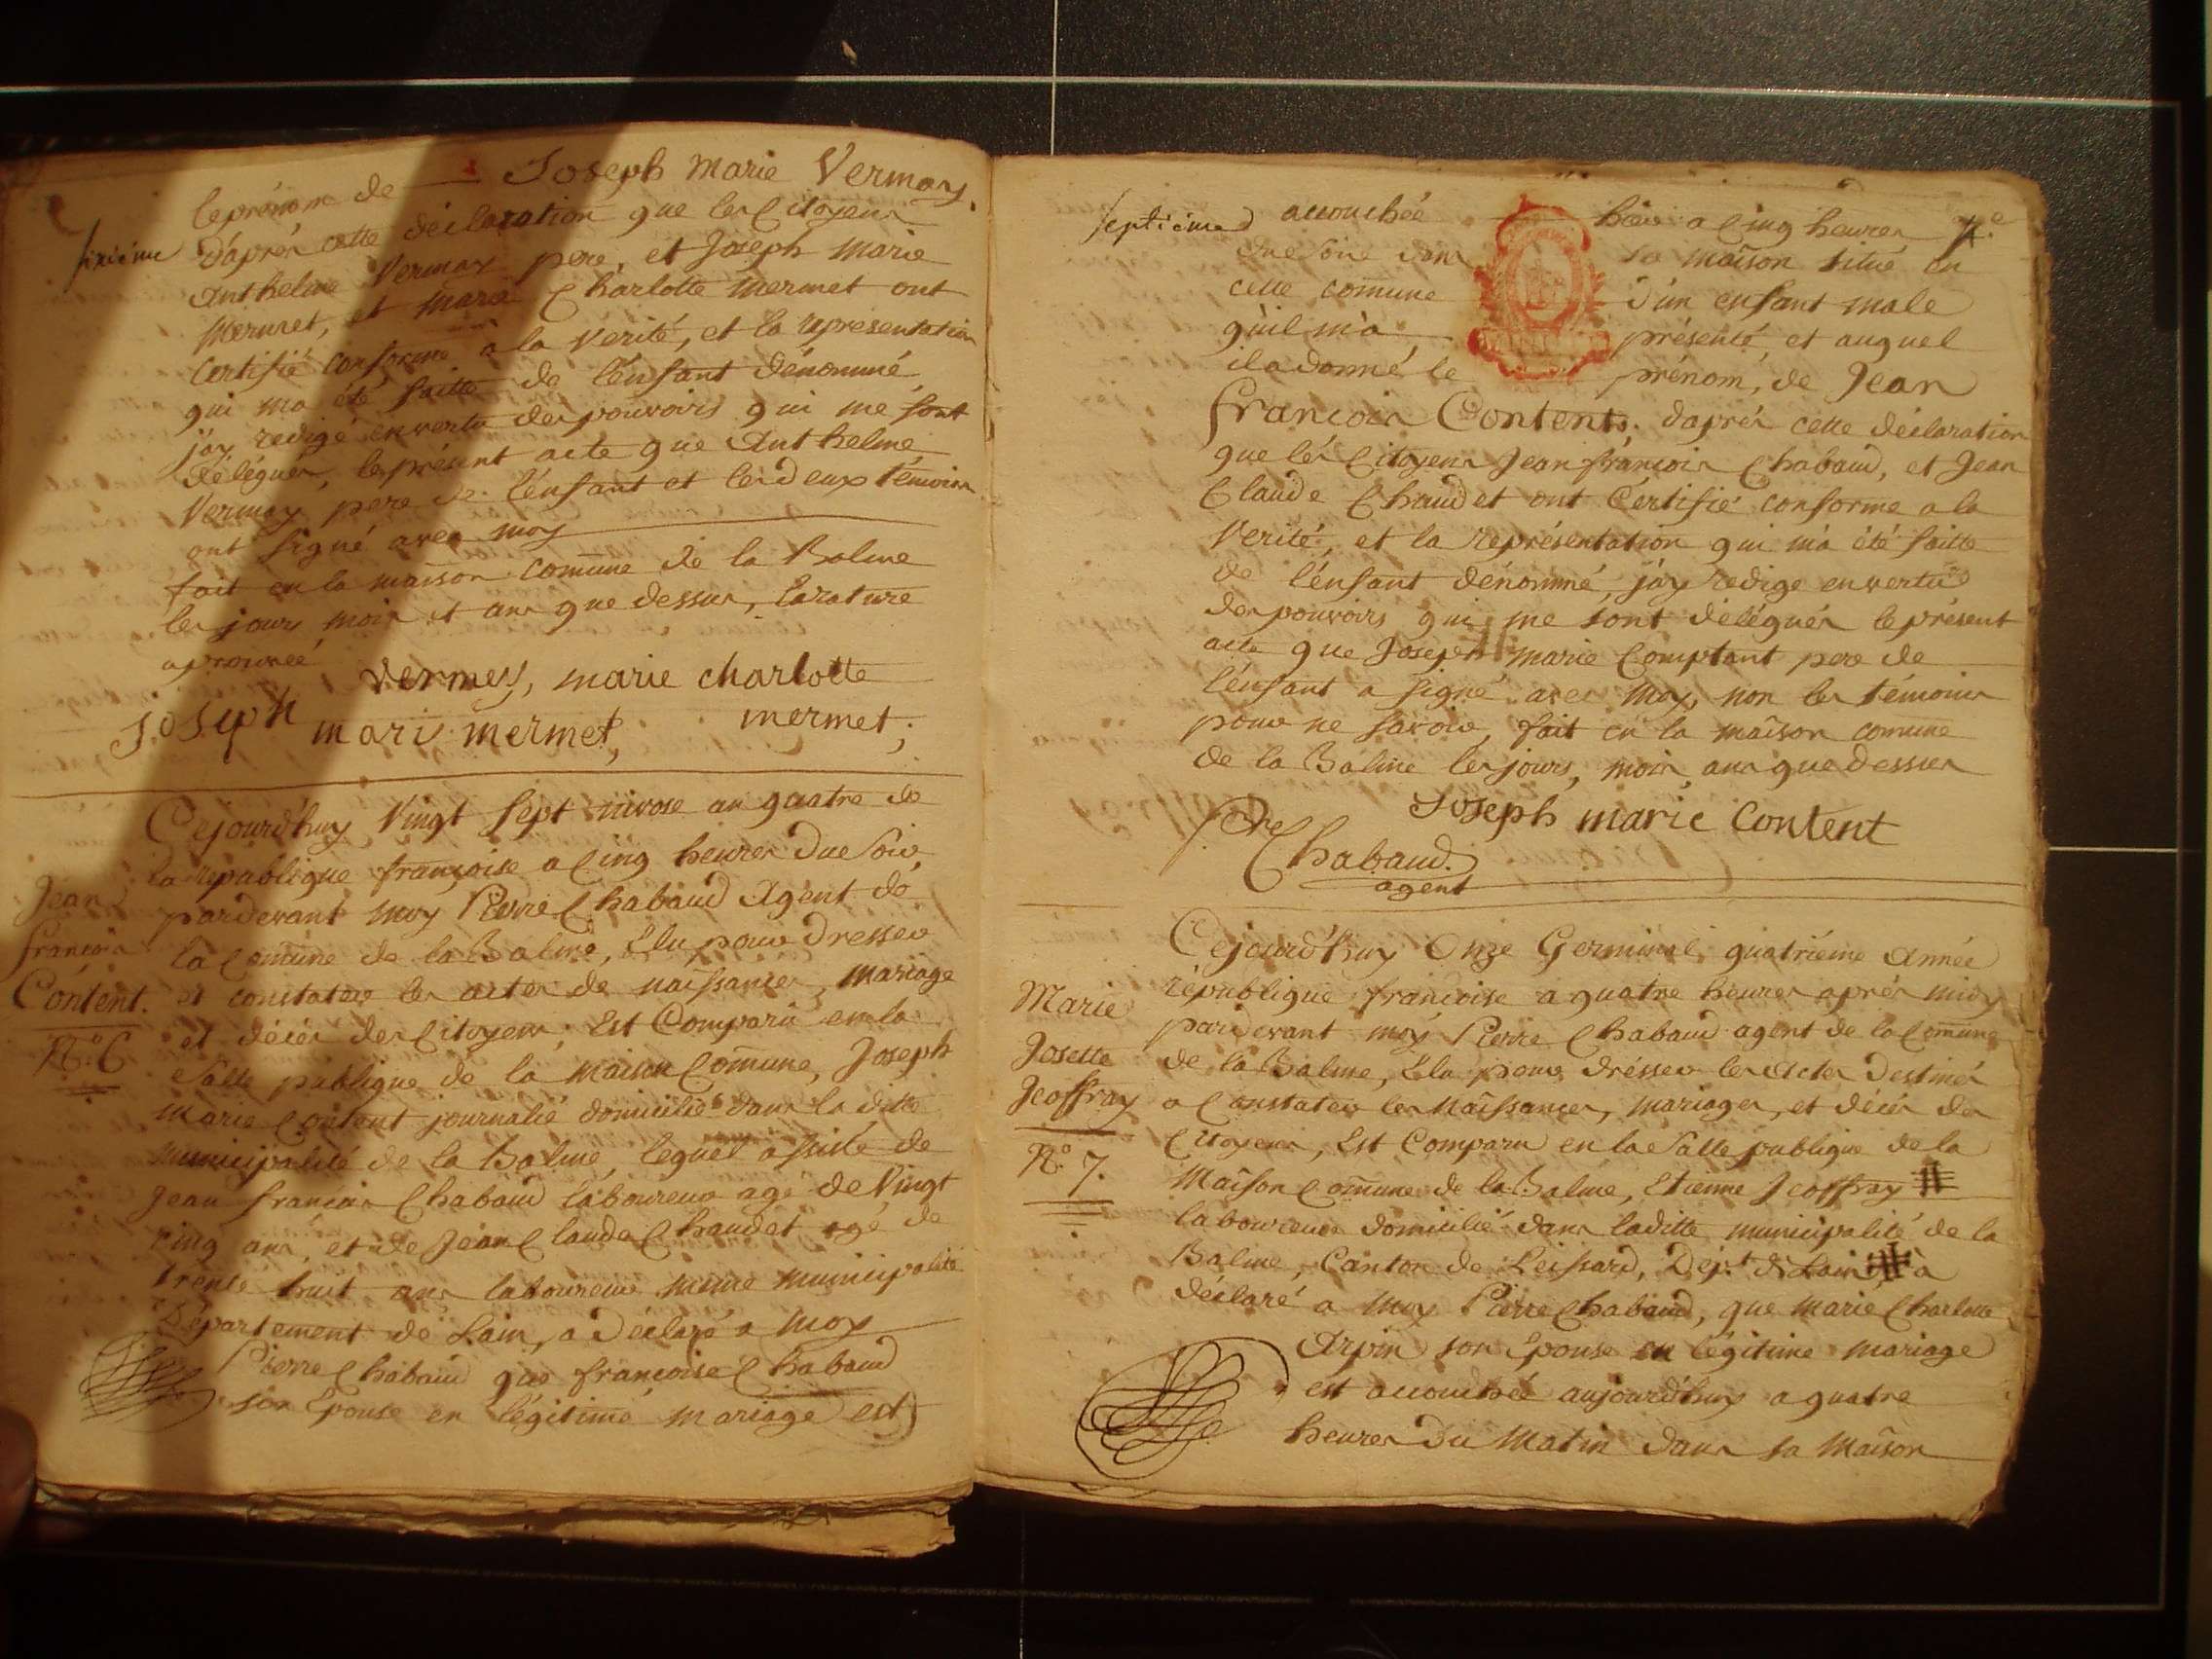 leprénom de Joseph Marie Vermay.
sixieme
d'aprés cette déclaration que les Citoyens
Anthelme Vermay pere, et Joseph Marie
Mermet, et Marie Charlotte Mermet ont
Certifié conforme a la Verité, et la representation
qui ma été faitte de l'enfant dénommé
j'ay redigé en vertu des pouvoirs qui me sont
délégués, le présent acte que Anthelme
Vermay pere de l'enfant et les deux témoins
ont signé avec moy
fait en la maison comune de la Balme
les jours mois et ans que dessus, la rature
aprouveé
vermey, marie charlotte
Joseph mari mermet, mermet;
Cejourd'huy Vingt Sept nivose an quatre de
la republique françoise a Cinq heures du Soir,
pardevant moy Pierre Chabaud Agent de
la Comune de la Balme, Elu pour dresser
et constater les actes de naissances, mariage
et décés des Citoyens, Est Comparu en la
Salle publique de la maison Comune, Joseph
Marie Content journalié domicilié dans la ditte
municipalité de la Balme, lequel assisté de
Jean françois Chabaud laboureur agé de Vingt
cinq ans, et de Jean Claude Chaudet agé de
trente huit ans laboureur meme municipalité
Département de Lain, a déclaré a moy
Pierre Chabaud que françoise Chabaud
son Epouse en légitime mariage est
Jean
françois
Content.
N.º 6
septieme
7.e
accouchée hier a Cinq heures
du soir dans sa maison situé en
cette comune d'un enfant male
qu'il m'a présenté, et auquel
il a donné le prénom, de Jean
françois Content. d'aprés cette déclaration
que les Citoyens Jean françois Chabaud, et Jean
Claude Chaudet ont Certifié conforme a la
Verité, et la représentation qui m'a été faitte
de l'enfant dénommé, j'ay redige en vertu
des pouvoirs qui me sont délégués le présent
acte que Joseph Marie Comptant pere de
l'enfant a signé avec moy, non les témoins
pour ne savoir, fait en la maison comune
de la Balme les jours, mois, ans que dessus
Joseph marie Content
Pre Chabaud.
agent
Cejourd'huy Onze Germinal quatriéme Année
république françoise a quatre heures aprés midy
pardevant moy Pierre Chabaud agent de la Comune
de la Balme, Elu pour drésser les Actes Destinés
a Constater les Naissances, mariages, et décés des
Citoyens, Est Comparu en la Salle publique de la
Maison Comune de la Balme, Etienne Jeoffray
laboureur domicilié dans laditte municipalité de la
Balme, Canton de Leissard, Dép.t de Lain, a
déclaré a moy Pierre Chabaud, que Marie Charlotte
Arpin son Epouse en légitime mariage
est accouchée aujourd'huy a quatre
heures du Matin dans sa Maison
Marie
Josette
Jeoffray
N.º 7.